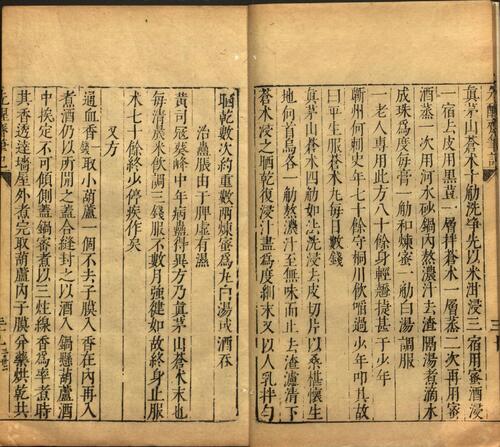 真茅山蒼朮十觔洗淨先以米泔浸
一宿去皮用黑荳一層拌蒼朮一層蒸二次再用蜜
酒蒸一次用河水砂鍋內熬濃汁去渣隔湯煮滴水
成珠爲度每膏一觔和煉蜜一觔白湯調服
一老人專用此方八十餘身輕㪍提甚于少年
蘄州何刺史年七十餘守桐川飲啗過少年叩其故
曰平生服蒼朮丸每日數錢
真茅山蒼朮四觔如法洗浸去皮切片以桑椹懷生
地何首烏各一觔熬濃汁至無味而止去渣濾清下
蒼朮浸之晒乾復浸汁盡爲度細末又以人乳拌勻
晒乾數次約重數兩煉蜜爲丸白湯或酒吞
治蠱脹由于脾虛有濕
黃司寇葵峰中年病蠱得異方乃真茅山蒼朮末也
每清晨米飲調三錢服不數月強健如故終身止服
朮七十餘終少停疾作矣
又方
通血香錢取小葫蘆一個不去子膜入香在內再入
煮酒仍以所開之蓋合縫封之以酒入鍋懸葫蘆酒
中挨定不可傾側蓋鍋密煮以三炷線香爲率煮時
其香透達墻屋外煮完取葫蘆內子膜分藥烘乾共